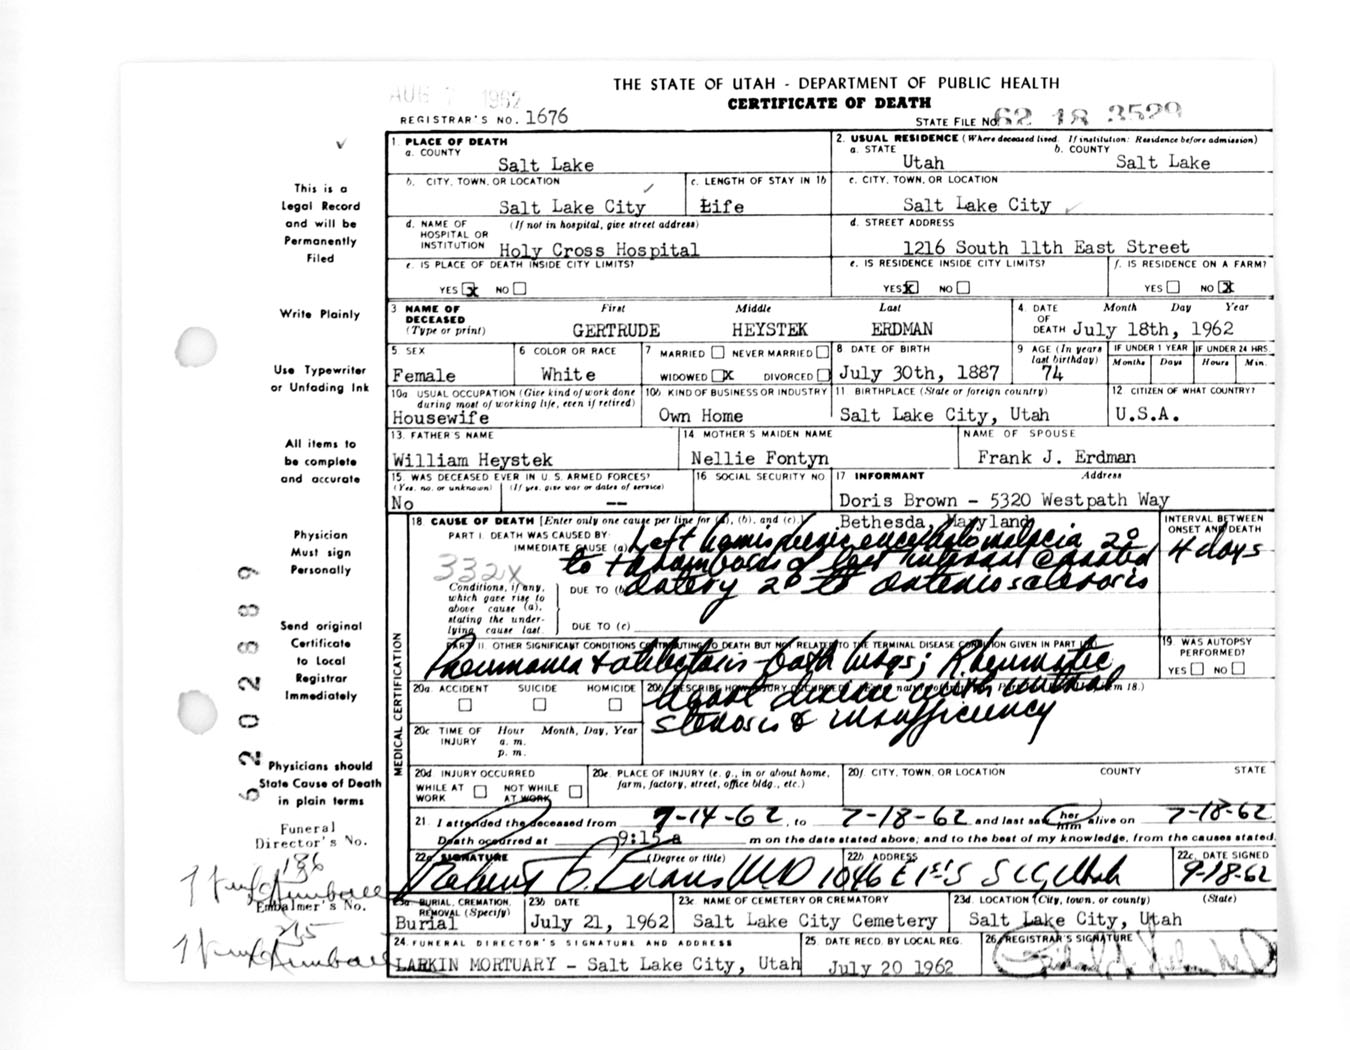 THE STATE OF UTAH - DEPARTMENT OF PUBLIC HEALTH
AUG 1962
CERTIFICATE OF DEATH
REGISTRAR'S NO. 1676
STATE FILE NO. 62 18 3529
1. PLACE OF DEATH
a. COUNTY
Salt Lake
2. USUAL RESIDENCE (Where deceased lived. If institution: Residence before admission)
a. STATE b. COUNTY
Utah Salt Lake
b. CITY, TOWN, OR LOCATION
Salt Lake City
c. LENGTH OF STAY IN 1b
Life
c. CITY, TOWN, OR LOCATION
Salt Lake City
d. NAME OF HOSPITAL OR INSTITUTION (If not in hospital, give street address)
Holy Cross Hospital
d. STREET ADDRESS
1216 South 11th East Street
e. IS PLACE OF DEATH INSIDE CITY LIMITS?
YES x NO
e. IS RESIDENCE INSIDE CITY LIMITS?
YES x NO
f. IS RESIDENCE ON A FARM?
YES NO x
3 NAME OF DECEASED (Type or print)
First Middle Last
GERTRUDE HEYSTEK ERDMAN
4. DATE OF DEATH Month Day Year
July 18th, 1962
5. SEX
Female
6 COLOR OR RACE
White
7 MARRIED NEVER MARRIED
WIDOWED x DIVORCED
8 DATE OF BIRTH
July 30th, 1887
9 AGE (In years last birthday)
74
IF UNDER 1 YEAR IF UNDER 24 HRS.
Months Days Hours Min.
10a USUAL OCCUPATION (Give kind of work done during most of working life, even if retired)
Housewife
10b KIND OF BUSINESS OR INDUSTRY
Own Home
11 BIRTHPLACE (State or foreign country)
Salt Lake City, Utah
12 CITIZEN OF WHAT COUNTRY?
U.S.A.
13. FATHER'S NAME
William Heystek
14 MOTHER'S MAIDEN NAME
Nellie Fontyn
NAME OF SPOUSE
Frank J. Erdman
15 WAS DECEASED EVER IN U. S. ARMED FORCES?
(Yes, no, or unknown) (If yes, give war or dates of service)
No --
16 SOCIAL SECURITY NO
17 INFORMANT Address
Doris Brown - 5320 Westpath Way
Bethesda, Maryland
MEDICAL CERTIFICATION
18 CAUSE OF DEATH [Enter only one cause per line for (a), (b), and (c).]
PART I. DEATH WAS CAUSED BY:
IMMEDIATE CAUSE (a) Left hemispheric encephalomalacia 2°
to thrombosis of left internal carotid
332X
Conditions, if any, which gave rise to above cause (a), stating the underlying cause last.
DUE TO (b) artery 2° to arteriosclerosis
DUE TO (c)
INTERVAL BETWEEN ONSET AND DEATH
4 days
PART II. OTHER SIGNIFICANT CONDITIONS CONTRIBUTING TO DEATH BUT NOT RELATED TO THE TERMINAL DISEASE CONDITION GIVEN IN PART I(a)
Pneumonia & atelectasis both lungs; Rheumatic
heart disease with mitral
stenosis & insufficiency
19 WAS AUTOPSY PERFORMED?
YES NO
20a. ACCIDENT SUICIDE HOMICIDE
20b DESCRIBE HOW INJURY OCCURRED
20c TIME OF INJURY Hour Month, Day, Year
a. m.
p. m.
20d. INJURY OCCURRED
WHILE AT WORK NOT WHILE AT WORK
20e. PLACE OF INJURY (e. g., in or about home, farm, factory, street, office bldg., etc.)
20f. CITY, TOWN, OR LOCATION COUNTY STATE
21. I attended the deceased from 7-14-62, to 7-18-62 and last saw her him alive on 7-18-62
Death occurred at 9:15 a m on the date stated above; and to the best of my knowledge, from the causes stated.
22a SIGNATURE (Degree or title)
Robert G. Evans MD
22b ADDRESS
1046 E 1st S SLC, Utah
22c. DATE SIGNED
9-18-62
23a BURIAL, CREMATION, REMOVAL (Specify)
Burial
23b DATE
July 21, 1962
23c NAME OF CEMETERY OR CREMATORY
Salt Lake City Cemetery
23d. LOCATION (City, town, or county) (State)
Salt Lake City, Utah
24. FUNERAL DIRECTOR'S SIGNATURE AND ADDRESS
LARKIN MORTUARY - Salt Lake City, Utah
25. DATE RECD. BY LOCAL REG.
July 20 1962
26 REGISTRAR'S SIGNATURE
This is a
Legal Record
and will be
Permanently
Filed
Write Plainly
Use Typewriter
or Unfading Ink
All items to
be complete
and accurate
Physician
Must sign
Personally
Send original
Certificate
to Local
Registrar
Immediately
Physicians should
State Cause of Death
in plain terms
Funeral
Director's No.
186
Embalmer's No.
215
6202389